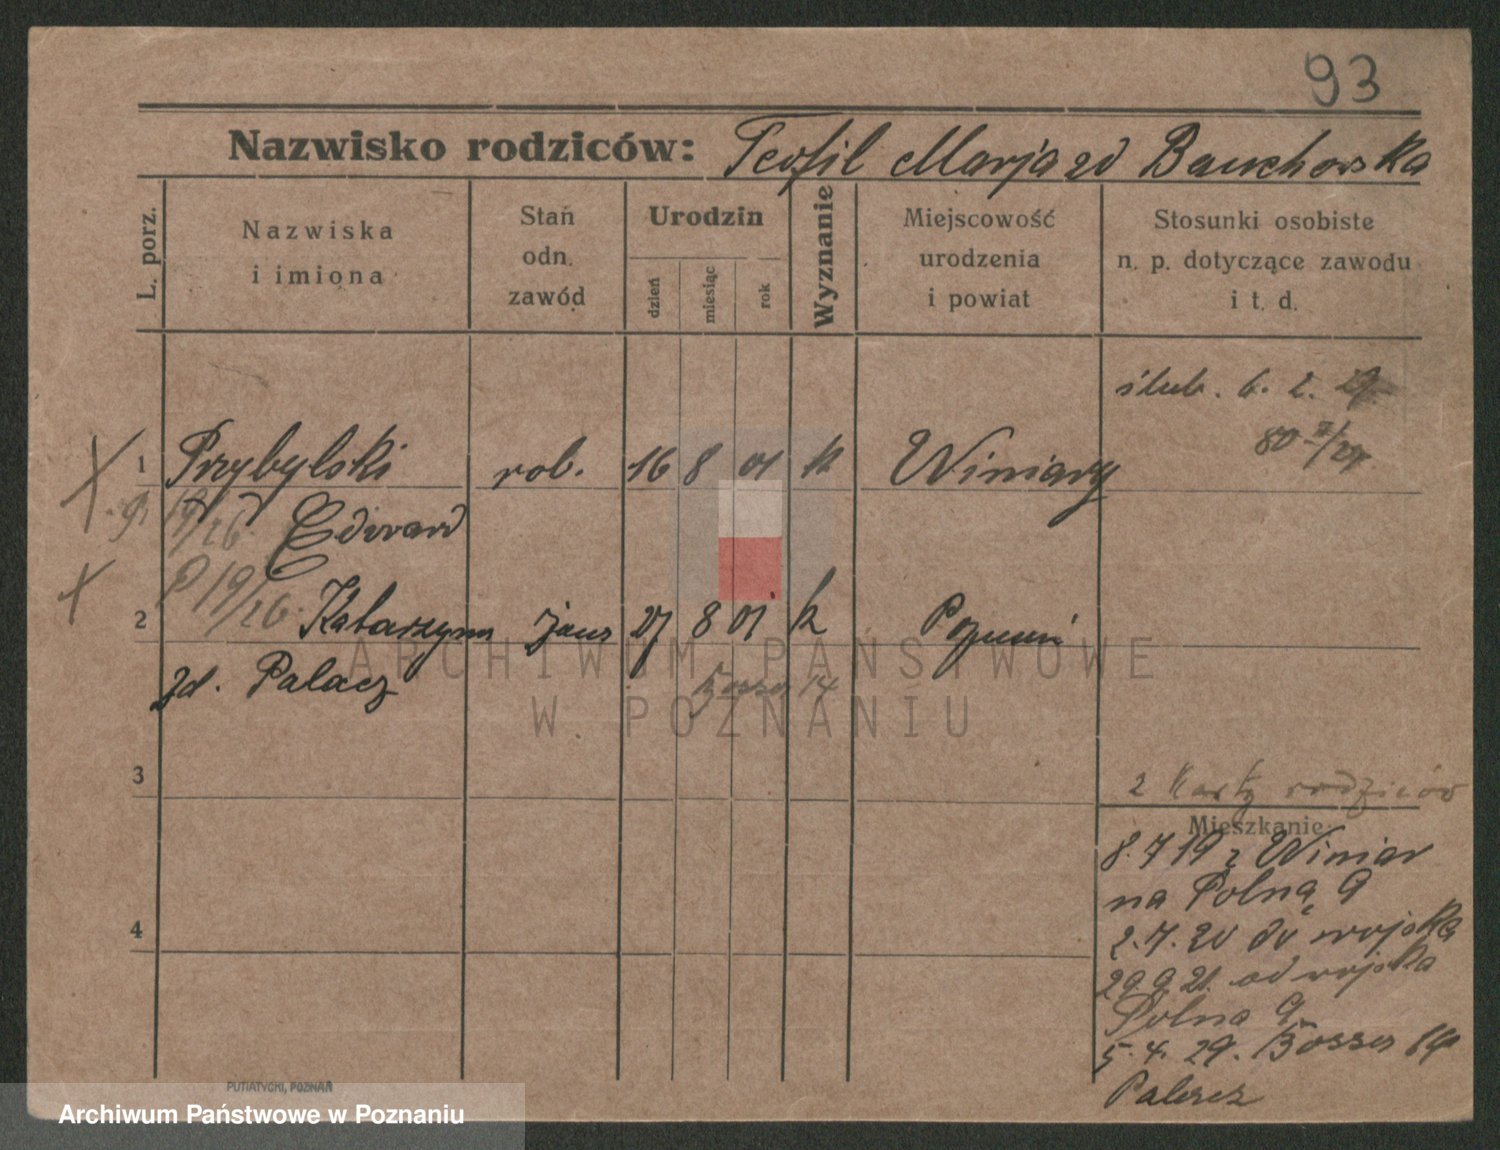 93
Nazwisko rodziców: Teofil Marja zd Bauchorska
L. porz.
Nazwiska
i imiona
Stań
odn.
zawód
Urodzin
dzień
miesiąc
rok
Wyznanie
Miejscowość
urodzenia
i powiat
Stosunki osobiste
n. p. dotyczące zawodu
i t. d.
ślub. 6. 2. 29.
1 Przybylski rob. 16 8 01 k Winiary
Edward
19/26
2 Katarzyna żona 27 8 01 k Poznań
zd. Palacz
Bosse 14
3
2 Karty rodziców
Mieszkanie
8. 7 19 z Winiar
na Polną 9
4
2. 7. 20 do wojska
29. 9 21. od wojska
Polna 9
5. 4. 29. Bosse 14
Palacz
PUTIATYCKI, POZNAŃ
ARCHIWUM PAŃSTWOWE
W POZNANIU
Archiwum Państwowe w Poznaniu